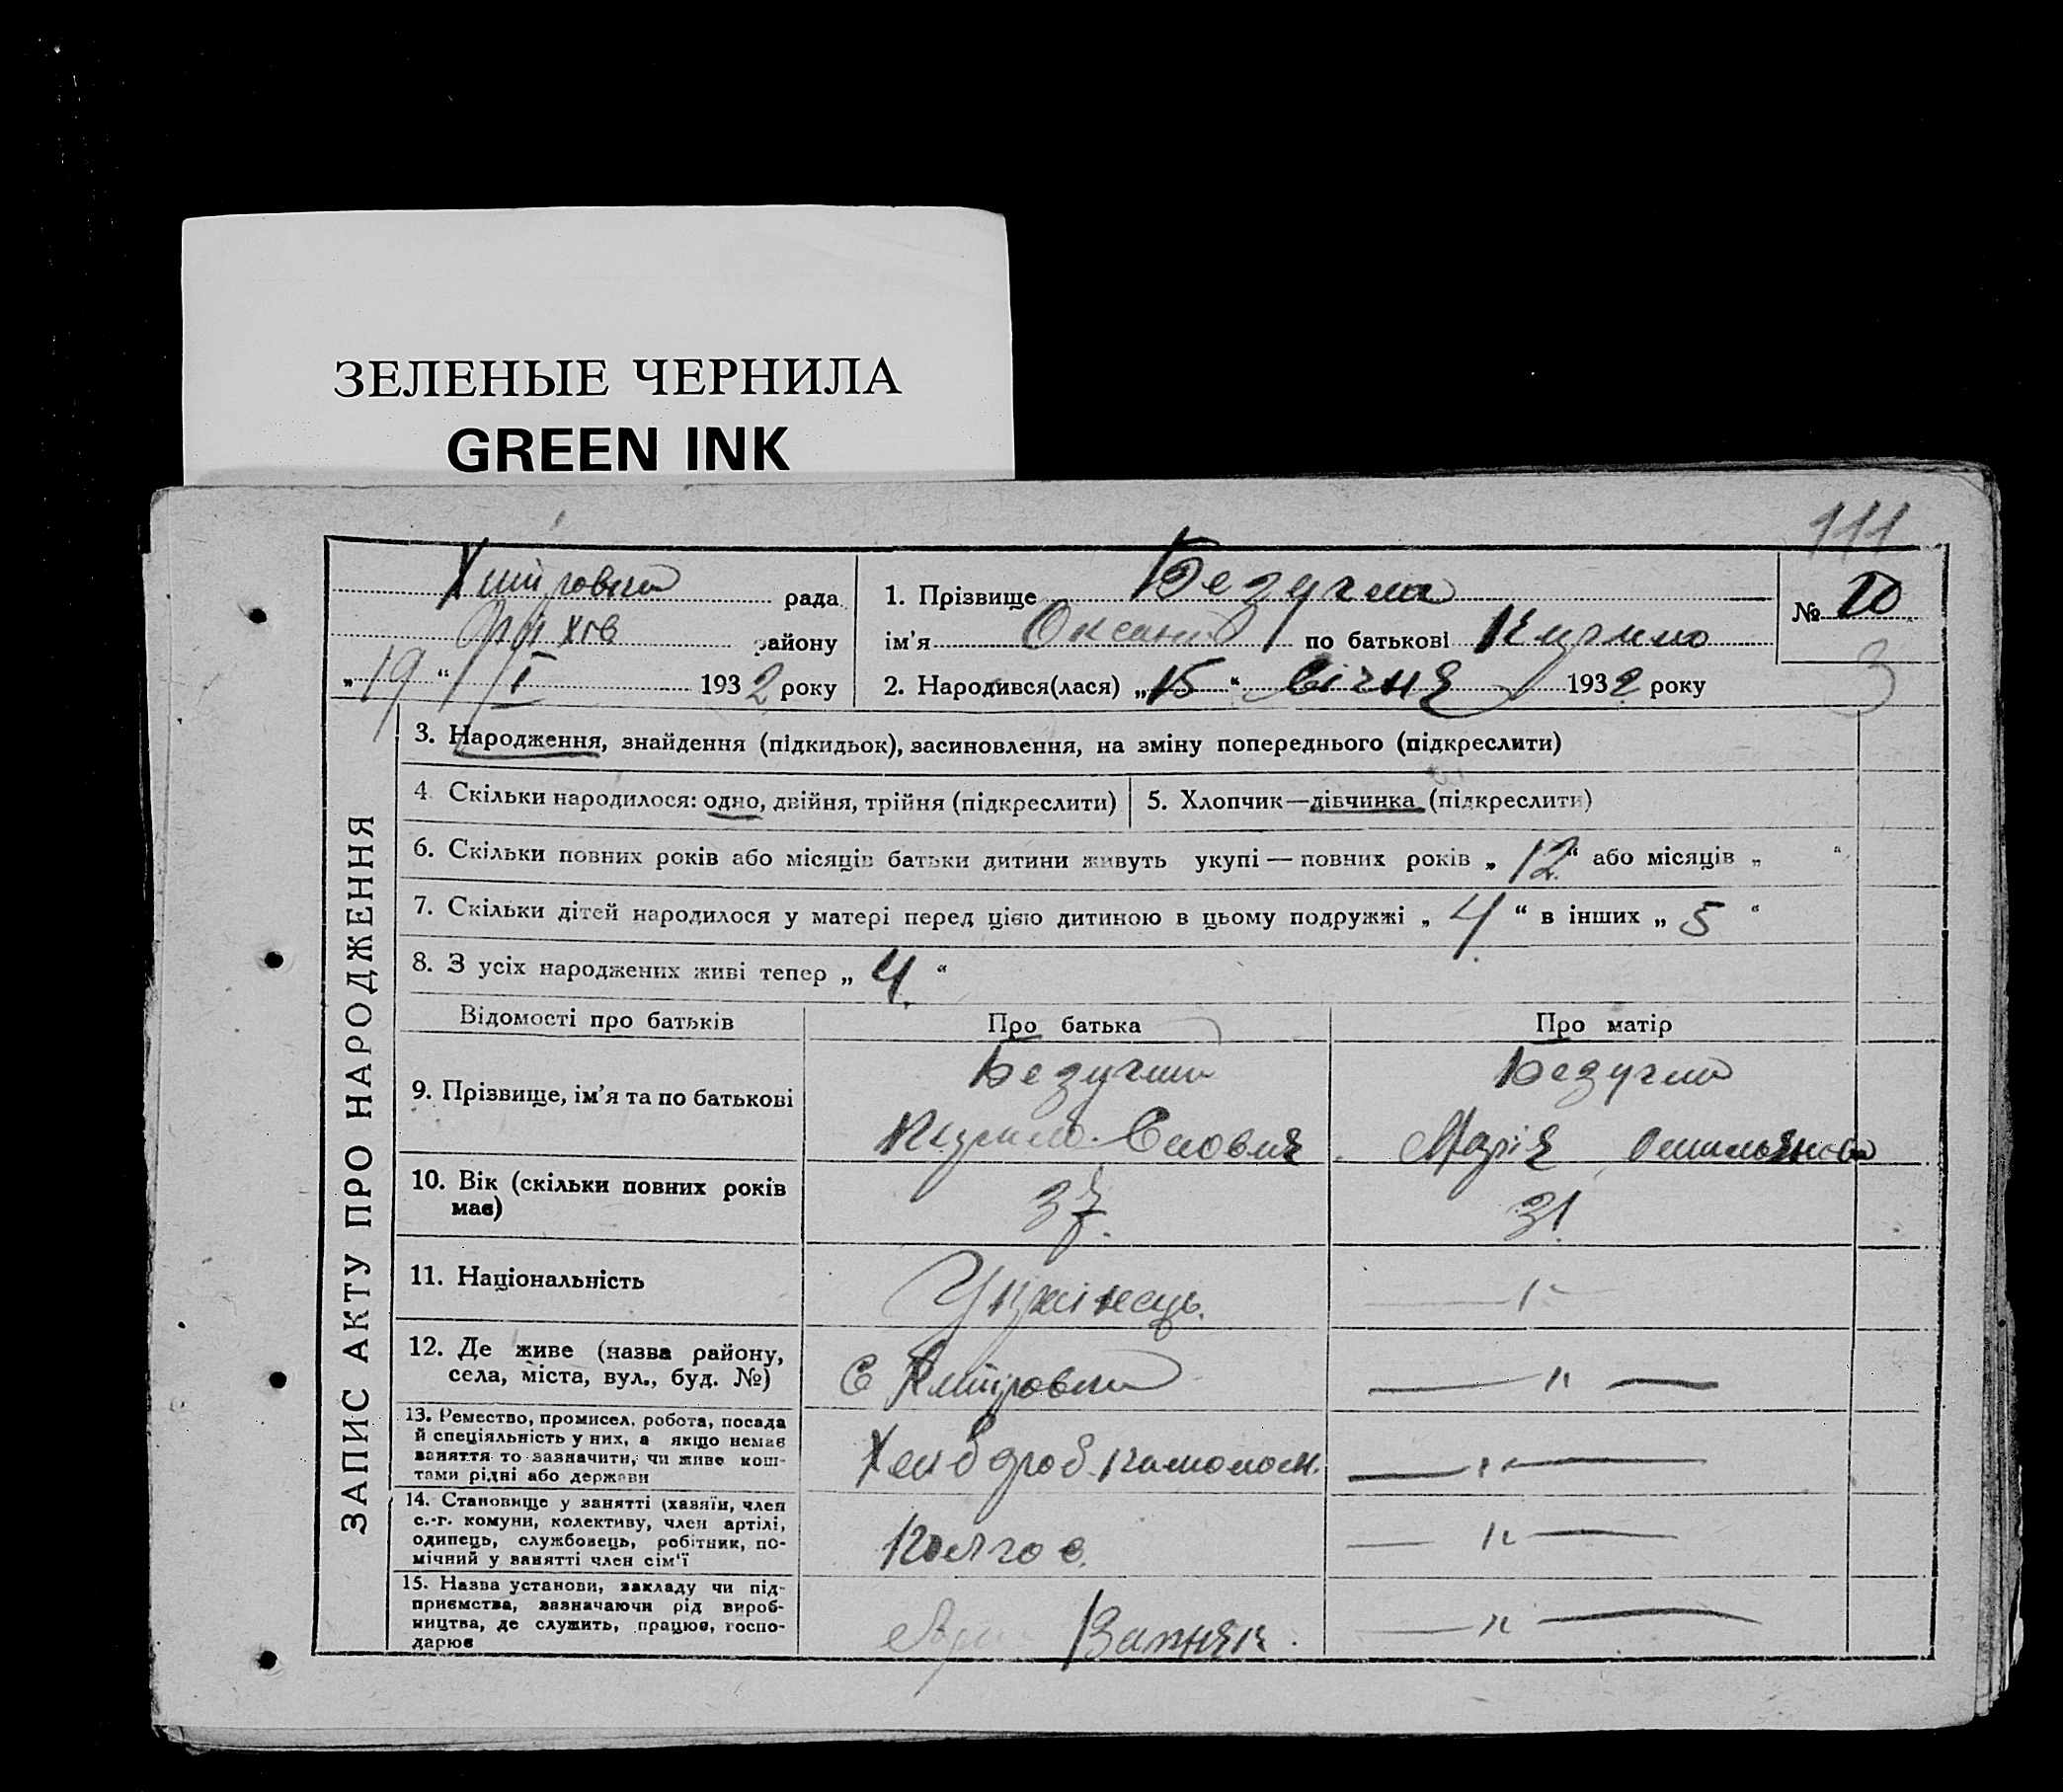 ЗЕЛЕНЫЕ ЧЕРНИЛА
GREEN INK
111
рада
району
„19“ I 1932 року
1. Прізвище Безугла
ім’я Оксана по батькові Кирило
2. Народився(лася) „15“ Січня 1932 року
№ 10
3
ЗАПИС АКТУ ПРО НАРОДЖЕННЯ
3. Народження, знайдення (підкидьок), засиновлення, на зміну попереднього (підкреслити)
4. Скільки народилося: одно, двійня, трійня (підкреслити)
5. Хлопчик—дівчинка (підкреслити)
6. Скільки повних років або місяців батьки дитини живуть укупі — повних років „12“ або місяців „ “
7. Скільки дітей народилося у матері перед цією дитиною в цьому подружжі „4“ в інших „5“
8. З усіх народжених живі тепер „4“
Відомості про батьків Про батька Про матір
9. Прізвище, ім’я та по батькові
Безуглий Безугла
Кирило Марія Омельянова
10. Вік (скільки повних років має) 37 31
11. Національність Українець —"—
12. Де живе (назва району,
села, міста, вул., буд. №)
С —"—
13. Ремество, промисел, робота, посада
й спеціяльність у них, а якщо немає
заняття то зазначити, чи живе кош-
тами рідні або держави
Хлібороб —"—
14. Становище у занятті (хазяїн, член
с.-г. комуни, колективу, член артілі,
одинець, службовець, робітник, по-
мічний у занятті член сім’ї
Колгос. —"—
15. Назва установи, закладу чи під-
приємства, зазначаючи рід вироб-
ництва, де служить, працює, госпо-
дарює
—"—